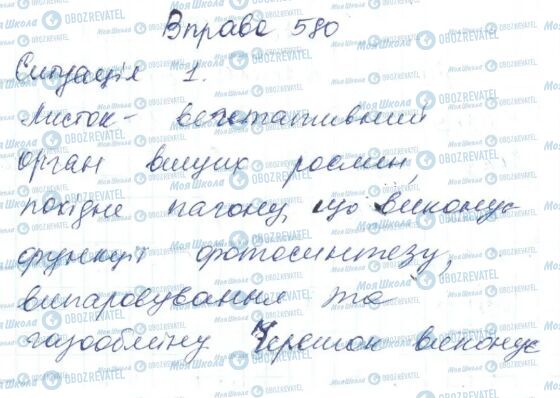 Вправа 580
Ситуація 1.
Листок - вегетативний
орган вищих рослин,
похідне пагону, що виконує
функції фотосинтезу,
випаровування та
газообміну Черешок виконує